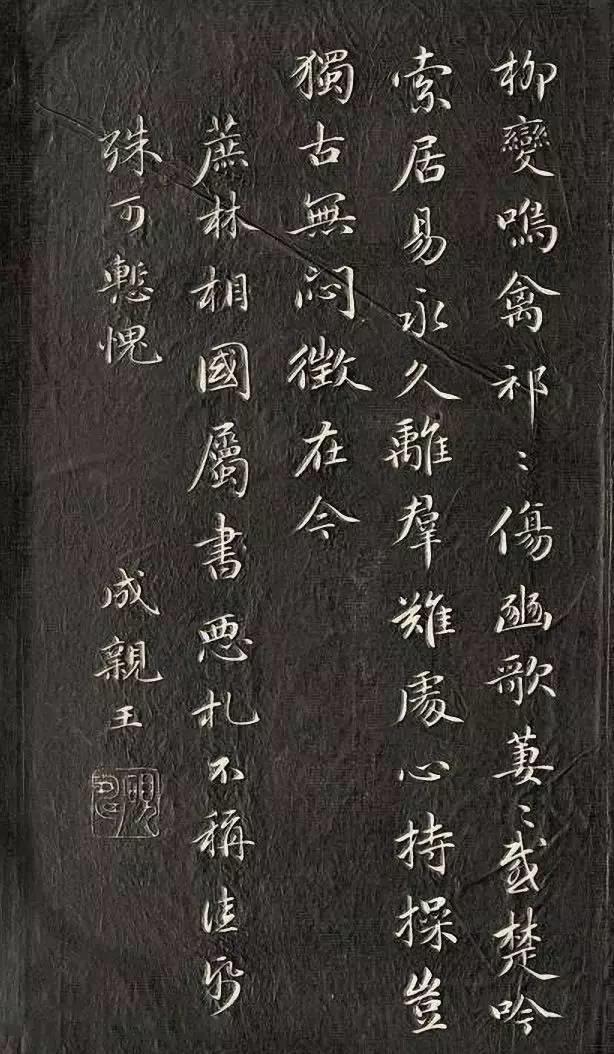 柳變鳴禽祁〻傷豳歌萋〻感楚吟
索居易永久離羣難處心持操豈
獨古無悶徵在今
蔗林相國屬書惡札不稱佳紙
殊可慙愧
成親王